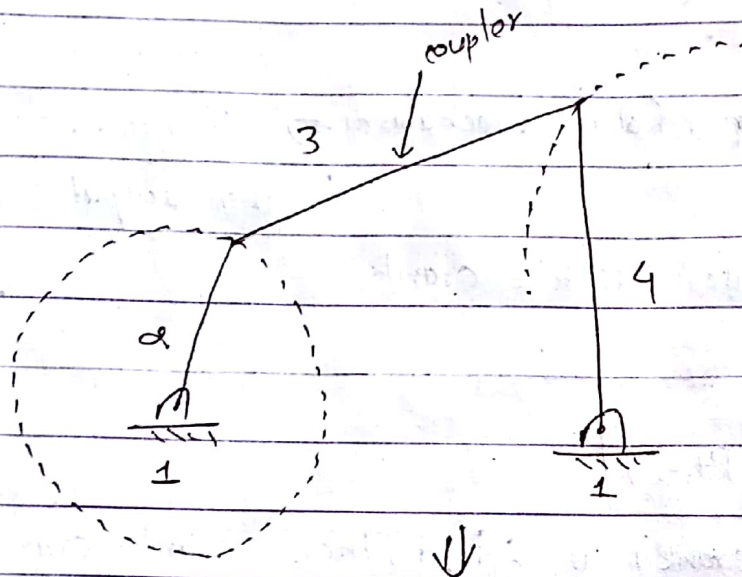 coupler
3
4
2
1
1